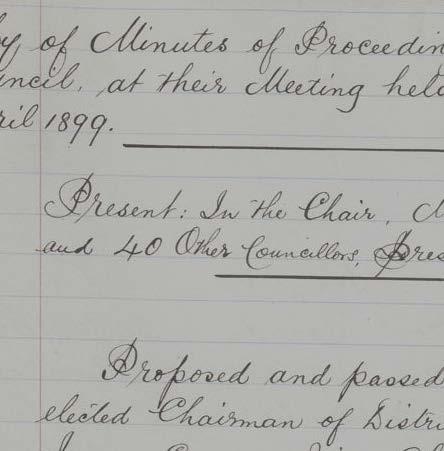 of Minutes of Proceedin
uncil, at their Meeting held
ril 1899.
Present: In the Chair,
and 40 Other Councillors, Pres
Proposed and passed
elected Chairman of Distri